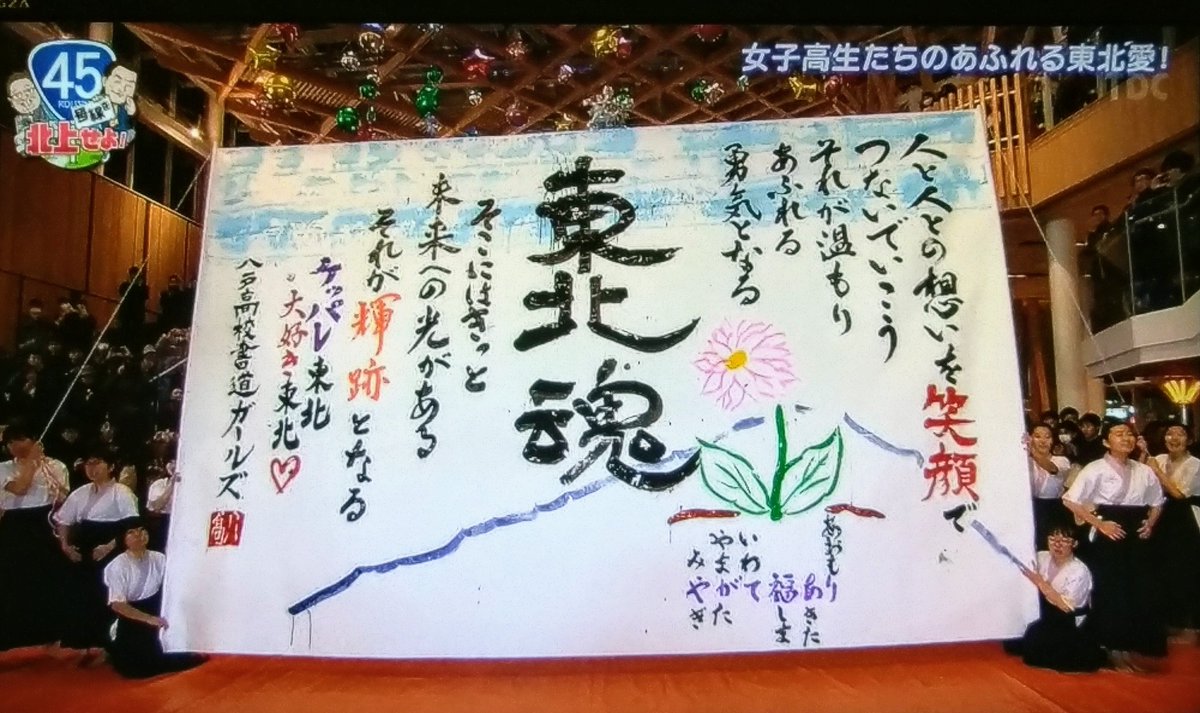 45
北上せよ!
女子高生たちのあふれる東北愛!
人と人との想いを笑顔で
つないでいこう
それが温もり
あふれる
勇気となる
東北魂
そこにはきっと
未来への光がある
それが輝跡となる
ケッパレ東北
大好き東北♡
八戸高校書道ガールズ
あおもり
あきた
福しま
いわて
やまがた
みやぎ